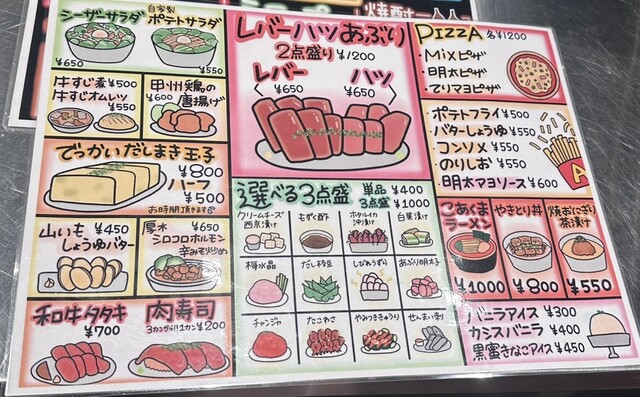 シーザーサラダ
¥650
自家製
ポテトサラダ
¥550
牛すじ煮 ¥500
牛すじオムレツ
¥550
甲州鶏の
¥600 唐揚げ
でっかいだしまき玉子
¥800
ハーフ
¥500
お時間頂きます
山いも ¥450
しょうゆバター
厚木 ¥650
シロコロホルモン
辛みそ炒め
和牛タタキ
¥700
肉寿司
3カンから!!1カン¥200
レバーハツあぶり
2点盛り ¥1200
レバー
¥650
ハツ
¥650
選べる3点盛
単品 ¥400
3点盛 ¥1000
クリームチーズ
西京漬け
もずく酢
ホタルイカ
沖漬け
白菜漬け
梅水晶
だし枝豆
しびれうずら
あぶり明太子
チャンジャ
たこわさ
やみつききゅうり
ぜんまい煮
PIZZA 各¥1200
・Mixピザ
・明太ピザ
・てりマヨピザ
ポテトフライ ¥500
・バターしょうゆ ¥550
・コンソメ ¥550
・のりしお ¥550
・明太マヨソース ¥600
こあくま
ラーメン
¥1000
やきとり丼
¥800
焼おにぎり
茶漬け
¥550
バニラアイス ¥300
カシスバニラ ¥400
黒蜜きなこアイス ¥450